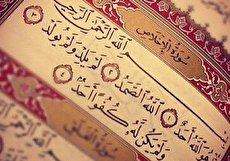 سُورَةُ الإِخْلَاصِ
اللَّهِ الرَّحْمَٰنِ الرَّحِيمِ
اللَّهُ أَحَدٌ ١ اللَّهُ الصَّمَدُ ٢ لَمْ يَلِدْ وَلَمْ يُولَدْ
٣ وَلَمْ يَكُن لَّهُ كُفُوًا أَحَدٌ ٤
سُورَةُ الفَلَقِ